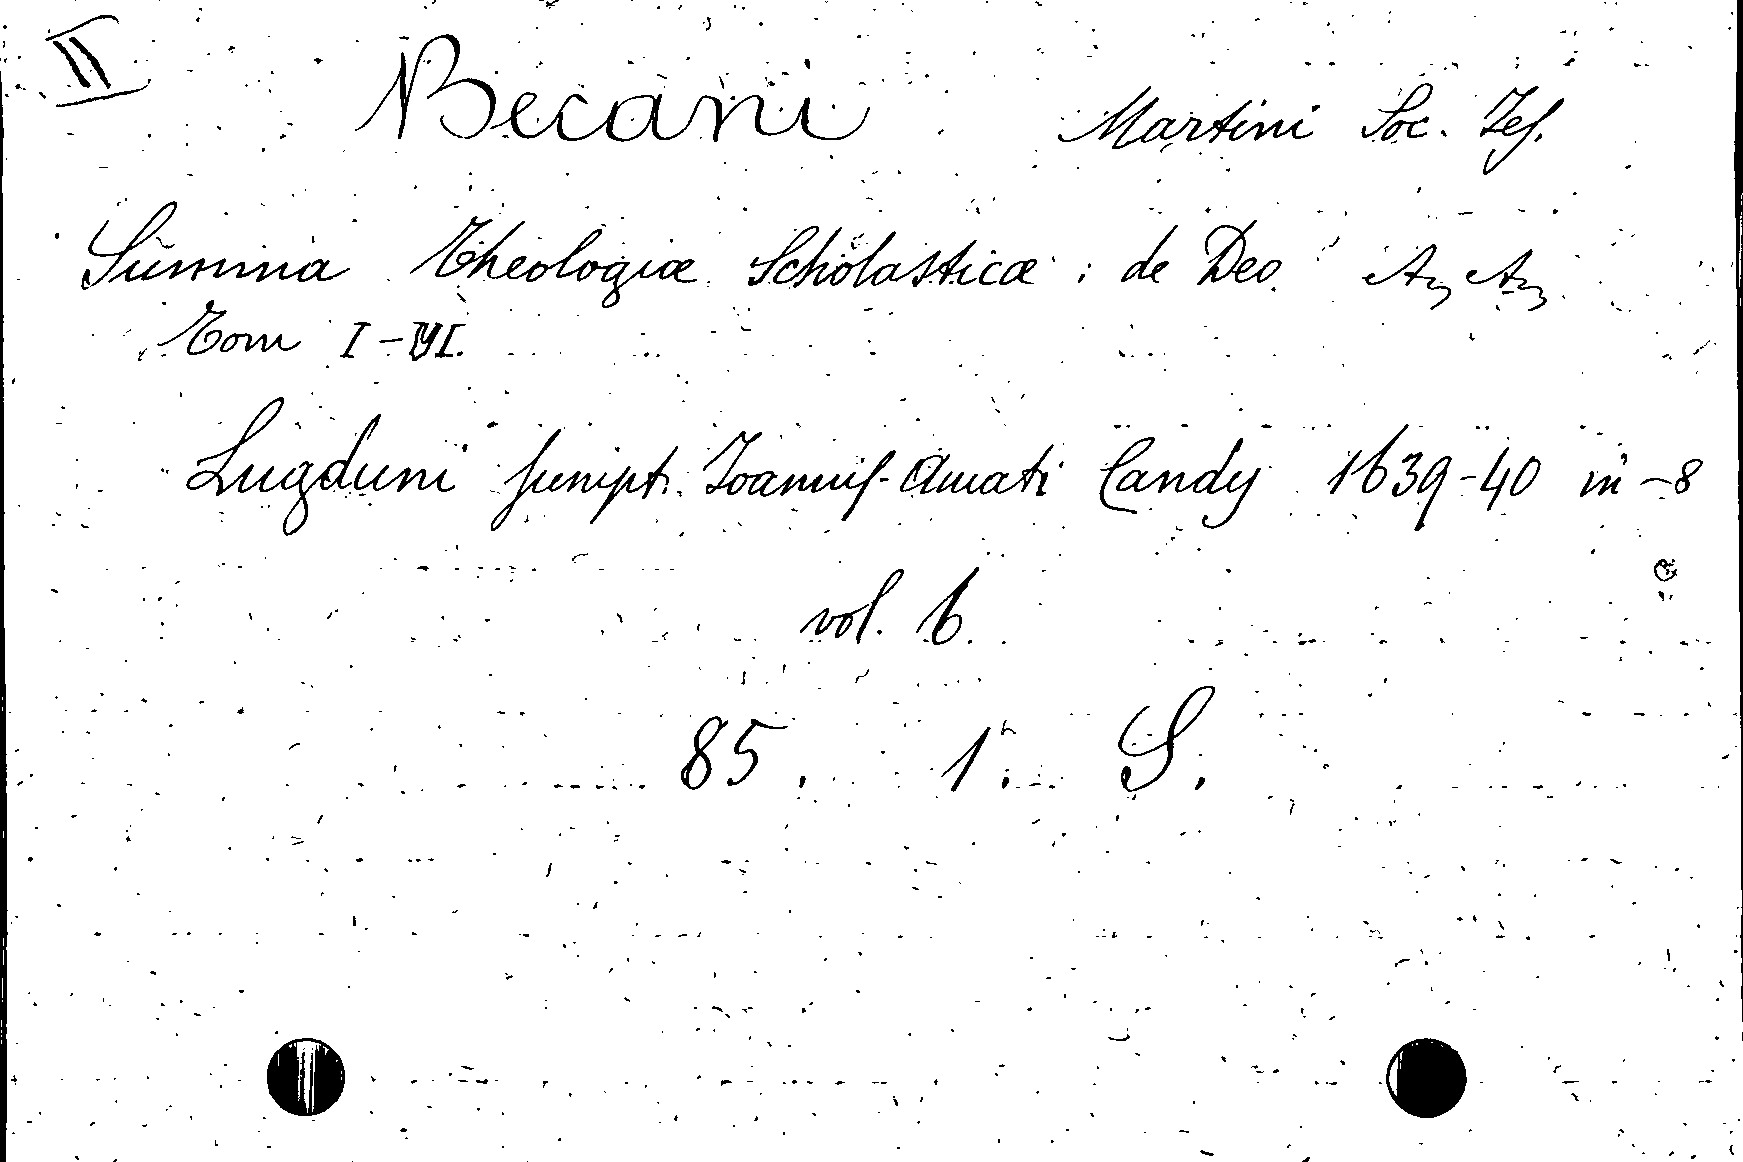 II
Becani Martini Soc. Jes.
Summa Theologiæ Scholasticæ : de Deo.
Tom I-VI.
Lugduni sumpt. Joannis-Amati Candy 1639-40 in-8
vol. 6.
85. 1. S.